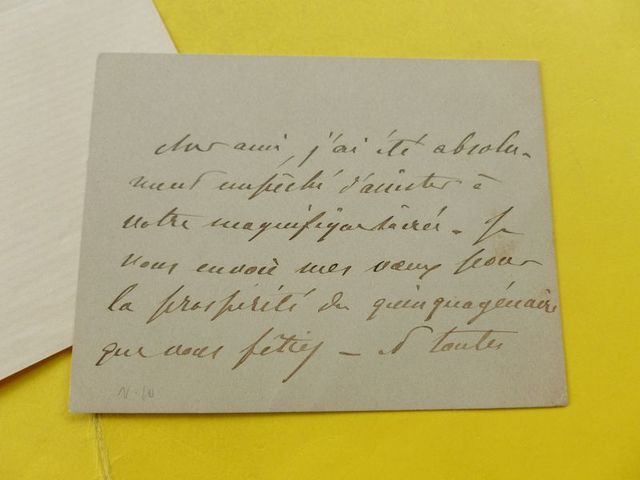 cher ami, j'ai été absolu-
ment empêché d'assister à
votre magnifique soirée. Je
vous envoie mes vœux pour
la prospérité du quinquagénaire
que vous fêtiez — et toutes